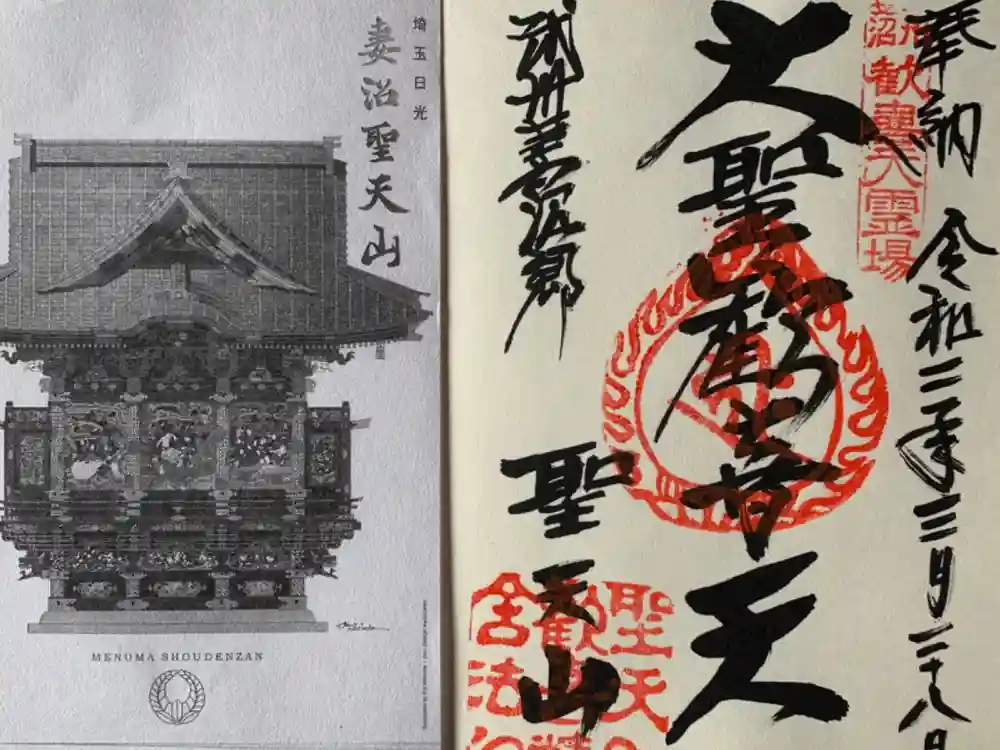 埼玉日光
妻沼聖天山
MENUMA SHOUDENZAN
奉納 令和二年三月二十八日
歓喜天霊場
大聖歓喜天
武州妻沼郷
聖天山
聖天